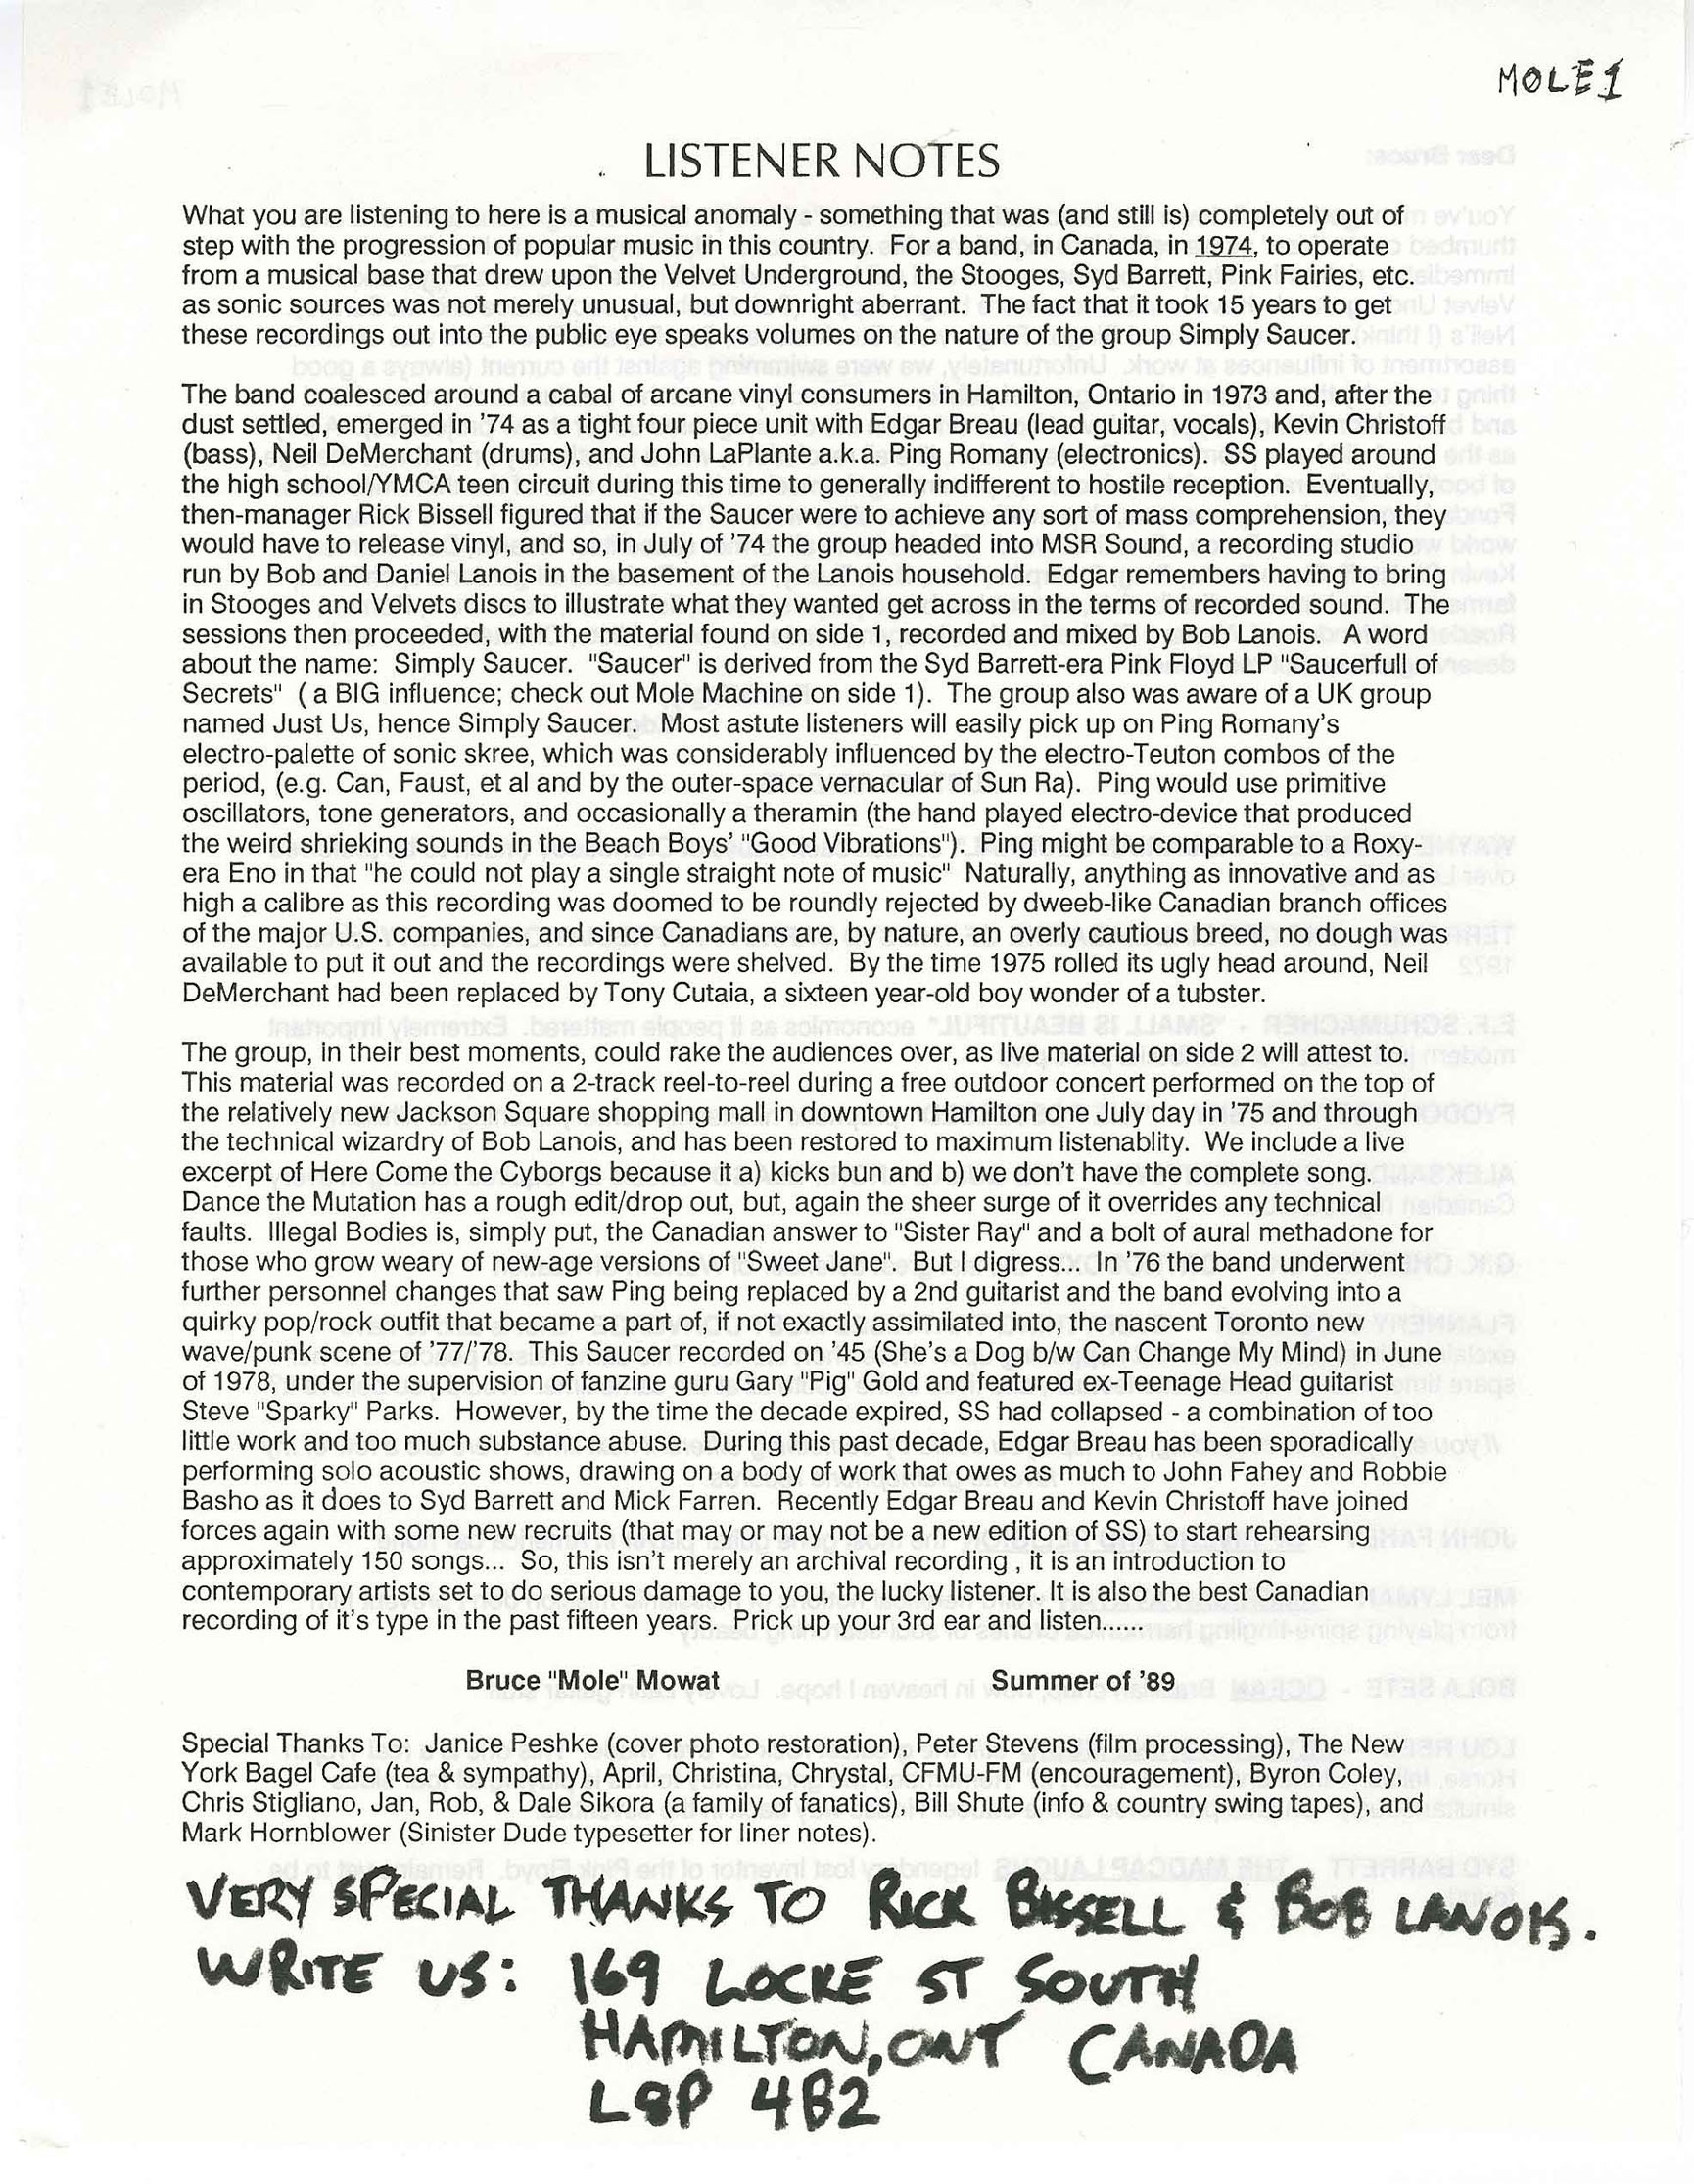 MOLE 1
LISTENER NOTES
What you are listening to here is a musical anomaly - something that was (and still is) completely out of
step with the progression of popular music in this country. For a band, in Canada, in 1974, to operate
from a musical base that drew upon the Velvet Underground, the Stooges, Syd Barrett, Pink Fairies, etc.
as sonic sources was not merely unusual, but downright aberrant. The fact that it took 15 years to get
these recordings out into the public eye speaks volumes on the nature of the group Simply Saucer.
The band coalesced around a cabal of arcane vinyl consumers in Hamilton, Ontario in 1973 and, after the
dust settled, emerged in '74 as a tight four piece unit with Edgar Breau (lead guitar, vocals), Kevin Christoff
(bass), Neil DeMerchant (drums), and John LaPlante a.k.a. Ping Romany (electronics). SS played around
the high school/YMCA teen circuit during this time to generally indifferent to hostile reception. Eventually,
then-manager Rick Bissell figured that if the Saucer were to achieve any sort of mass comprehension, they
would have to release vinyl, and so, in July of '74 the group headed into MSR Sound, a recording studio
run by Bob and Daniel Lanois in the basement of the Lanois household. Edgar remembers having to bring
in Stooges and Velvets discs to illustrate what they wanted get across in the terms of recorded sound. The
sessions then proceeded, with the material found on side 1, recorded and mixed by Bob Lanois. A word
about the name: Simply Saucer. "Saucer" is derived from the Syd Barrett-era Pink Floyd LP "Saucerfull of
Secrets" ( a BIG influence; check out Mole Machine on side 1). The group also was aware of a UK group
named Just Us, hence Simply Saucer. Most astute listeners will easily pick up on Ping Romany's
electro-palette of sonic skree, which was considerably influenced by the electro-Teuton combos of the
period, (e.g. Can, Faust, et al and by the outer-space vernacular of Sun Ra). Ping would use primitive
oscillators, tone generators, and occasionally a theramin (the hand played electro-device that produced
the weird shrieking sounds in the Beach Boys' "Good Vibrations"). Ping might be comparable to a Roxy-
era Eno in that "he could not play a single straight note of music" Naturally, anything as innovative and as
high a calibre as this recording was doomed to be roundly rejected by dweeb-like Canadian branch offices
of the major U.S. companies, and since Canadians are, by nature, an overly cautious breed, no dough was
available to put it out and the recordings were shelved. By the time 1975 rolled its ugly head around, Neil
DeMerchant had been replaced by Tony Cutaia, a sixteen year-old boy wonder of a tubster.
The group, in their best moments, could rake the audiences over, as live material on side 2 will attest to.
This material was recorded on a 2-track reel-to-reel during a free outdoor concert performed on the top of
the relatively new Jackson Square shopping mall in downtown Hamilton one July day in '75 and through
the technical wizardry of Bob Lanois, and has been restored to maximum listenablity. We include a live
excerpt of Here Come the Cyborgs because it a) kicks bun and b) we don't have the complete song.
Dance the Mutation has a rough edit/drop out, but, again the sheer surge of it overrides any technical
faults. Illegal Bodies is, simply put, the Canadian answer to "Sister Ray" and a bolt of aural methadone for
those who grow weary of new-age versions of "Sweet Jane". But I digress... In '76 the band underwent
further personnel changes that saw Ping being replaced by a 2nd guitarist and the band evolving into a
quirky pop/rock outfit that became a part of, if not exactly assimilated into, the nascent Toronto new
wave/punk scene of '77/'78. This Saucer recorded on '45 (She's a Dog b/w Can Change My Mind) in June
of 1978, under the supervision of fanzine guru Gary "Pig" Gold and featured ex-Teenage Head guitarist
Steve "Sparky" Parks. However, by the time the decade expired, SS had collapsed - a combination of too
little work and too much substance abuse. During this past decade, Edgar Breau has been sporadically
performing solo acoustic shows, drawing on a body of work that owes as much to John Fahey and Robbie
Basho as it does to Syd Barrett and Mick Farren. Recently Edgar Breau and Kevin Christoff have joined
forces again with some new recruits (that may or may not be a new edition of SS) to start rehearsing
approximately 150 songs... So, this isn't merely an archival recording , it is an introduction to
contemporary artists set to do serious damage to you, the lucky listener. It is also the best Canadian
recording of it's type in the past fifteen years. Prick up your 3rd ear and listen......
Bruce "Mole" Mowat Summer of '89
Special Thanks To: Janice Peshke (cover photo restoration), Peter Stevens (film processing), The New
York Bagel Cafe (tea & sympathy), April, Christina, Chrystal, CFMU-FM (encouragement), Byron Coley,
Chris Stigliano, Jan, Rob, & Dale Sikora (a family of fanatics), Bill Shute (info & country swing tapes), and
Mark Hornblower (Sinister Dude typesetter for liner notes).
VERY SPECIAL THANKS TO RICK BISSELL & BOB LANOIS.
WRITE US: 169 LOCKE ST SOUTH
HAMILTON, ONT CANADA
L8P 4B2